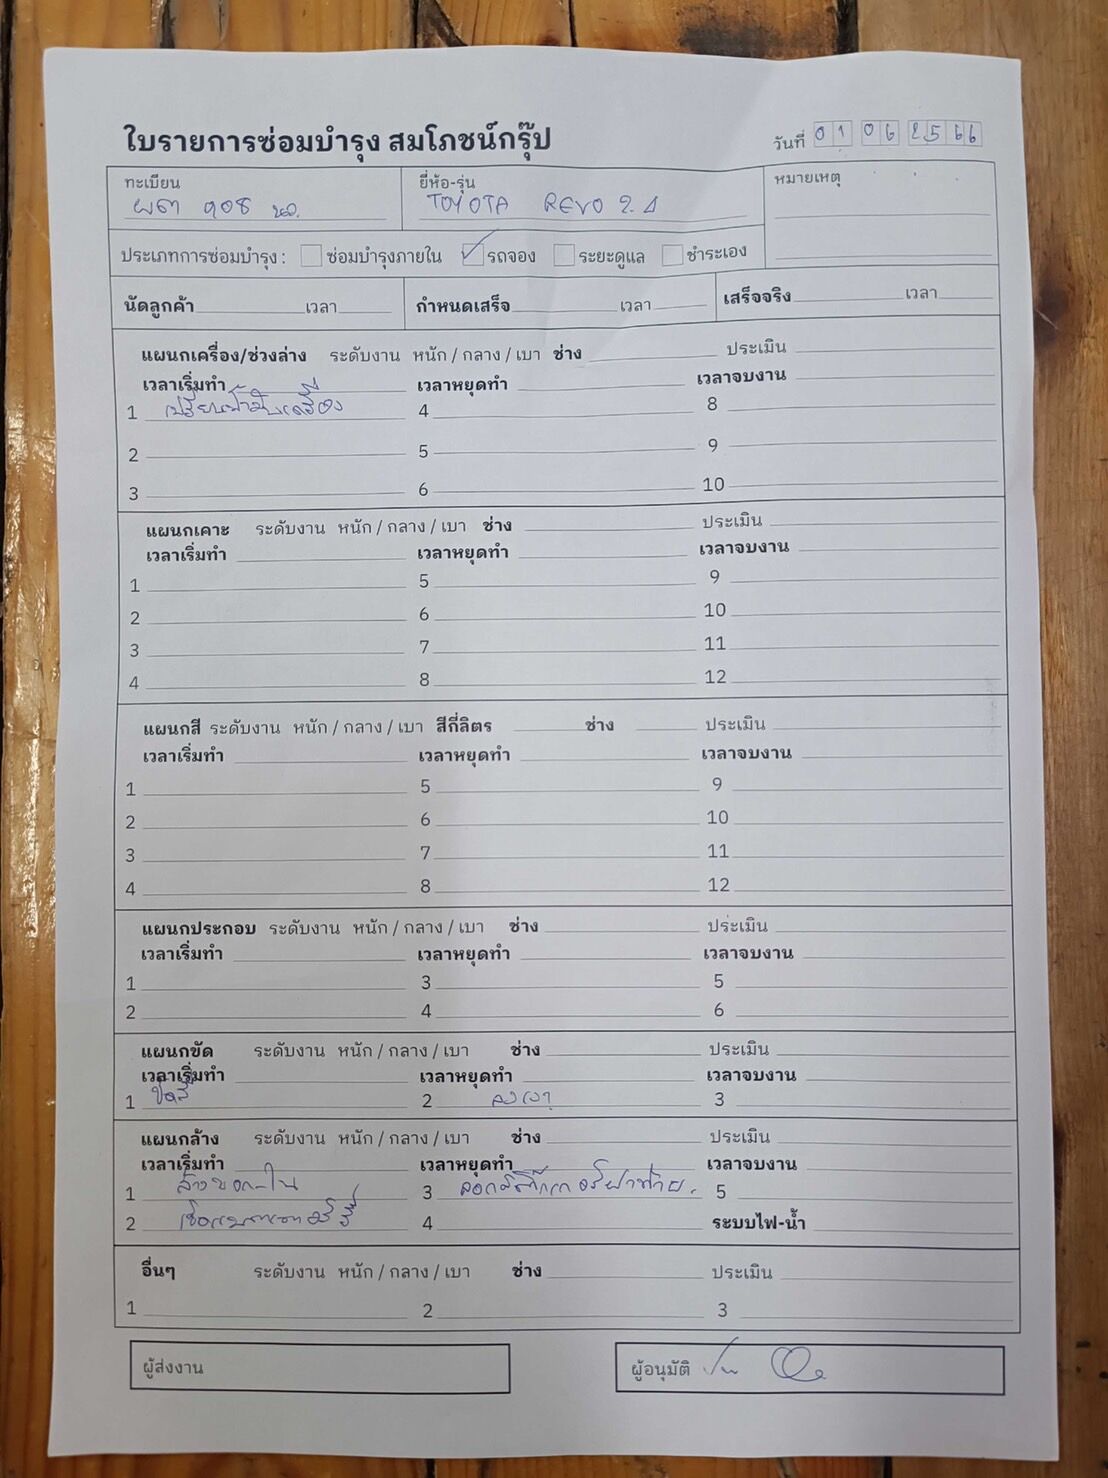 ใบรายการซ่อมบำรุง สมโภชน์กรุ๊ป
วันที่ 01 06 2566
ทะเบียน ยี่ห้อ-รุ่น หมายเหตุ
ผต 908 TOYOTA REVO 2.4
ประเภทการซ่อมบำรุง : ซ่อมบำรุงภายใน รถจอง ระยะดูแล ชำระเอง
นัดลูกค้า เวลา กำหนดเสร็จ เวลา เสร็จจริง เวลา
แผนกเครื่อง/ช่วงล่าง ระดับงาน หนัก / กลาง / เบา ช่าง ประเมิน
เวลาเริ่มทำ เวลาหยุดทำ เวลาจบงาน
1 เปลี่ยนน้ำมันเครื่อง 4 8
2 5 9
3 6 10
แผนกเคาะ ระดับงาน หนัก / กลาง / เบา ช่าง ประเมิน
เวลาเริ่มทำ เวลาหยุดทำ เวลาจบงาน
1 5 9
2 6 10
3 7 11
4 8 12
แผนกสี ระดับงาน หนัก / กลาง / เบา สีกี่ลิตร ช่าง ประเมิน
เวลาเริ่มทำ เวลาหยุดทำ เวลาจบงาน
1 5 9
2 6 10
3 7 11
4 8 12
แผนกประกอบ ระดับงาน หนัก / กลาง / เบา ช่าง ประเมิน
เวลาเริ่มทำ เวลาหยุดทำ เวลาจบงาน
1 3 5
2 4 6
แผนกขัด ระดับงาน หนัก / กลาง / เบา ช่าง ประเมิน
เวลาเริ่มทำ เวลาหยุดทำ เวลาจบงาน
1 ขัดสี 2 ลงเงา 3
แผนกล้าง ระดับงาน หนัก / กลาง / เบา ช่าง ประเมิน
เวลาเริ่มทำ เวลาหยุดทำ เวลาจบงาน
1 ล้างนอก-ใน 3 ลอกสติ๊กเกอร์ฝาท้าย 5
2 เช็คแบตเตอรี่ 4 ระบบไฟ-น้ำ
อื่นๆ ระดับงาน หนัก / กลาง / เบา ช่าง ประเมิน
1 2 3
ผู้ส่งงาน ผู้อนุมัติ